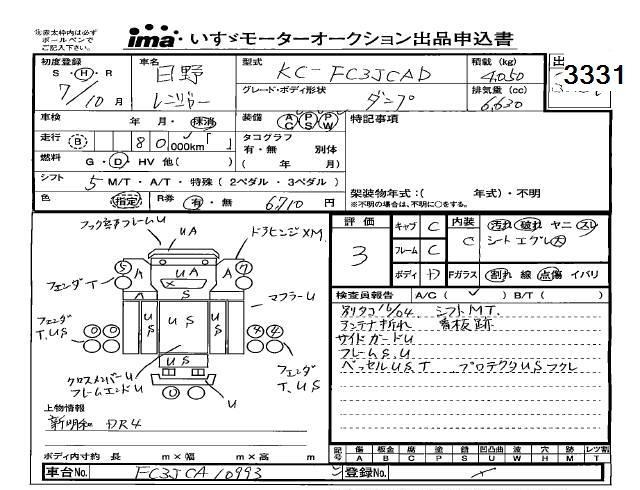 ※赤太枠内は必ず
ボールペンで
ご記入下さい。
ima いすゞモーターオークション出品申込書
初度登録 車名 型式 積載 (kg) 出
S・H・R 日野 KC-FC3JCAD 4,050 3331
7/10月 レンジャー グレード・ボディ形状 ダンプ 排気量 (cc) 6,630
車検 年 月・抹消 装備 AC PS PW 特記事項
走行 B 80,000km タコグラフ
有・無 別体
燃料 G・D・HV 他( ) ( 年 月)
シフト 5 M/T・A/T・特殊(2ペダル・3ペダル) 架装物年式:( 年式)・不明
色 指定 R券 有・無 6710円 ※不明の場合は、不明に○をする。
フックステーフレームU UA ドアヒンジXM
評価 3 キャブ C 内装 C 汚れ 破れ ヤニ スレ
シートエグレ大
フレーム C
ボディ D Fガラス 割れ 線 点傷 イバリ
5 A UA A 7
フェンダT X
検査員報告 A/C( ✓ ) B/T( )
別タコ16/04 シフトMT.
アンテナ折れ 看板跡
サイドガードU
フレームS.U
ベッセルUS.T プロテクタUSフクレ
A S A
U S U S U S
マフラーU
フェンダ
T.US
0 0 4 4
S
クロスメンバーU
フレームエンドU
U
フェンダ
T.US
0
U
上物情報
新明和 DR4
ボディ内寸約 長 m×幅 m×高 m
記号 傷 板金 腐 塗 錆 凹凸曲 波 穴 跡 レツ割
A B C P S U W H M T
車台No. FC3JCA10993 登録No.